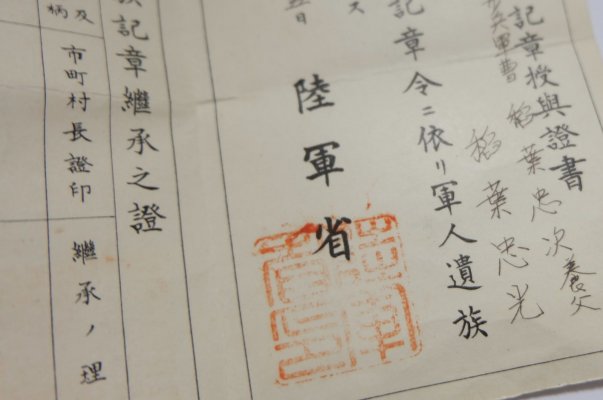 記章授與證書
軍曹 稻葉忠次養父
稻葉忠光
記章令ニ依リ軍人遺族
ス
五日
陸軍省
記章繼承之證
及
柄
市町村長證印
繼承ノ理